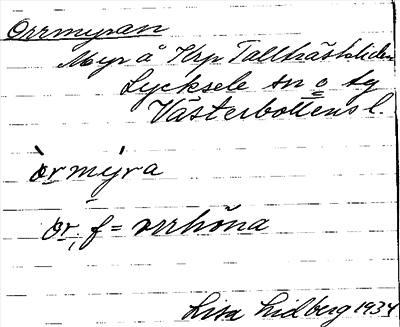 Orrmyran
Myr å Krp Tallträskliden
Lycksele sn o ty
Västerbottens l.
òrmýra
or, f = orrhöna
Lisa Lidberg 1934